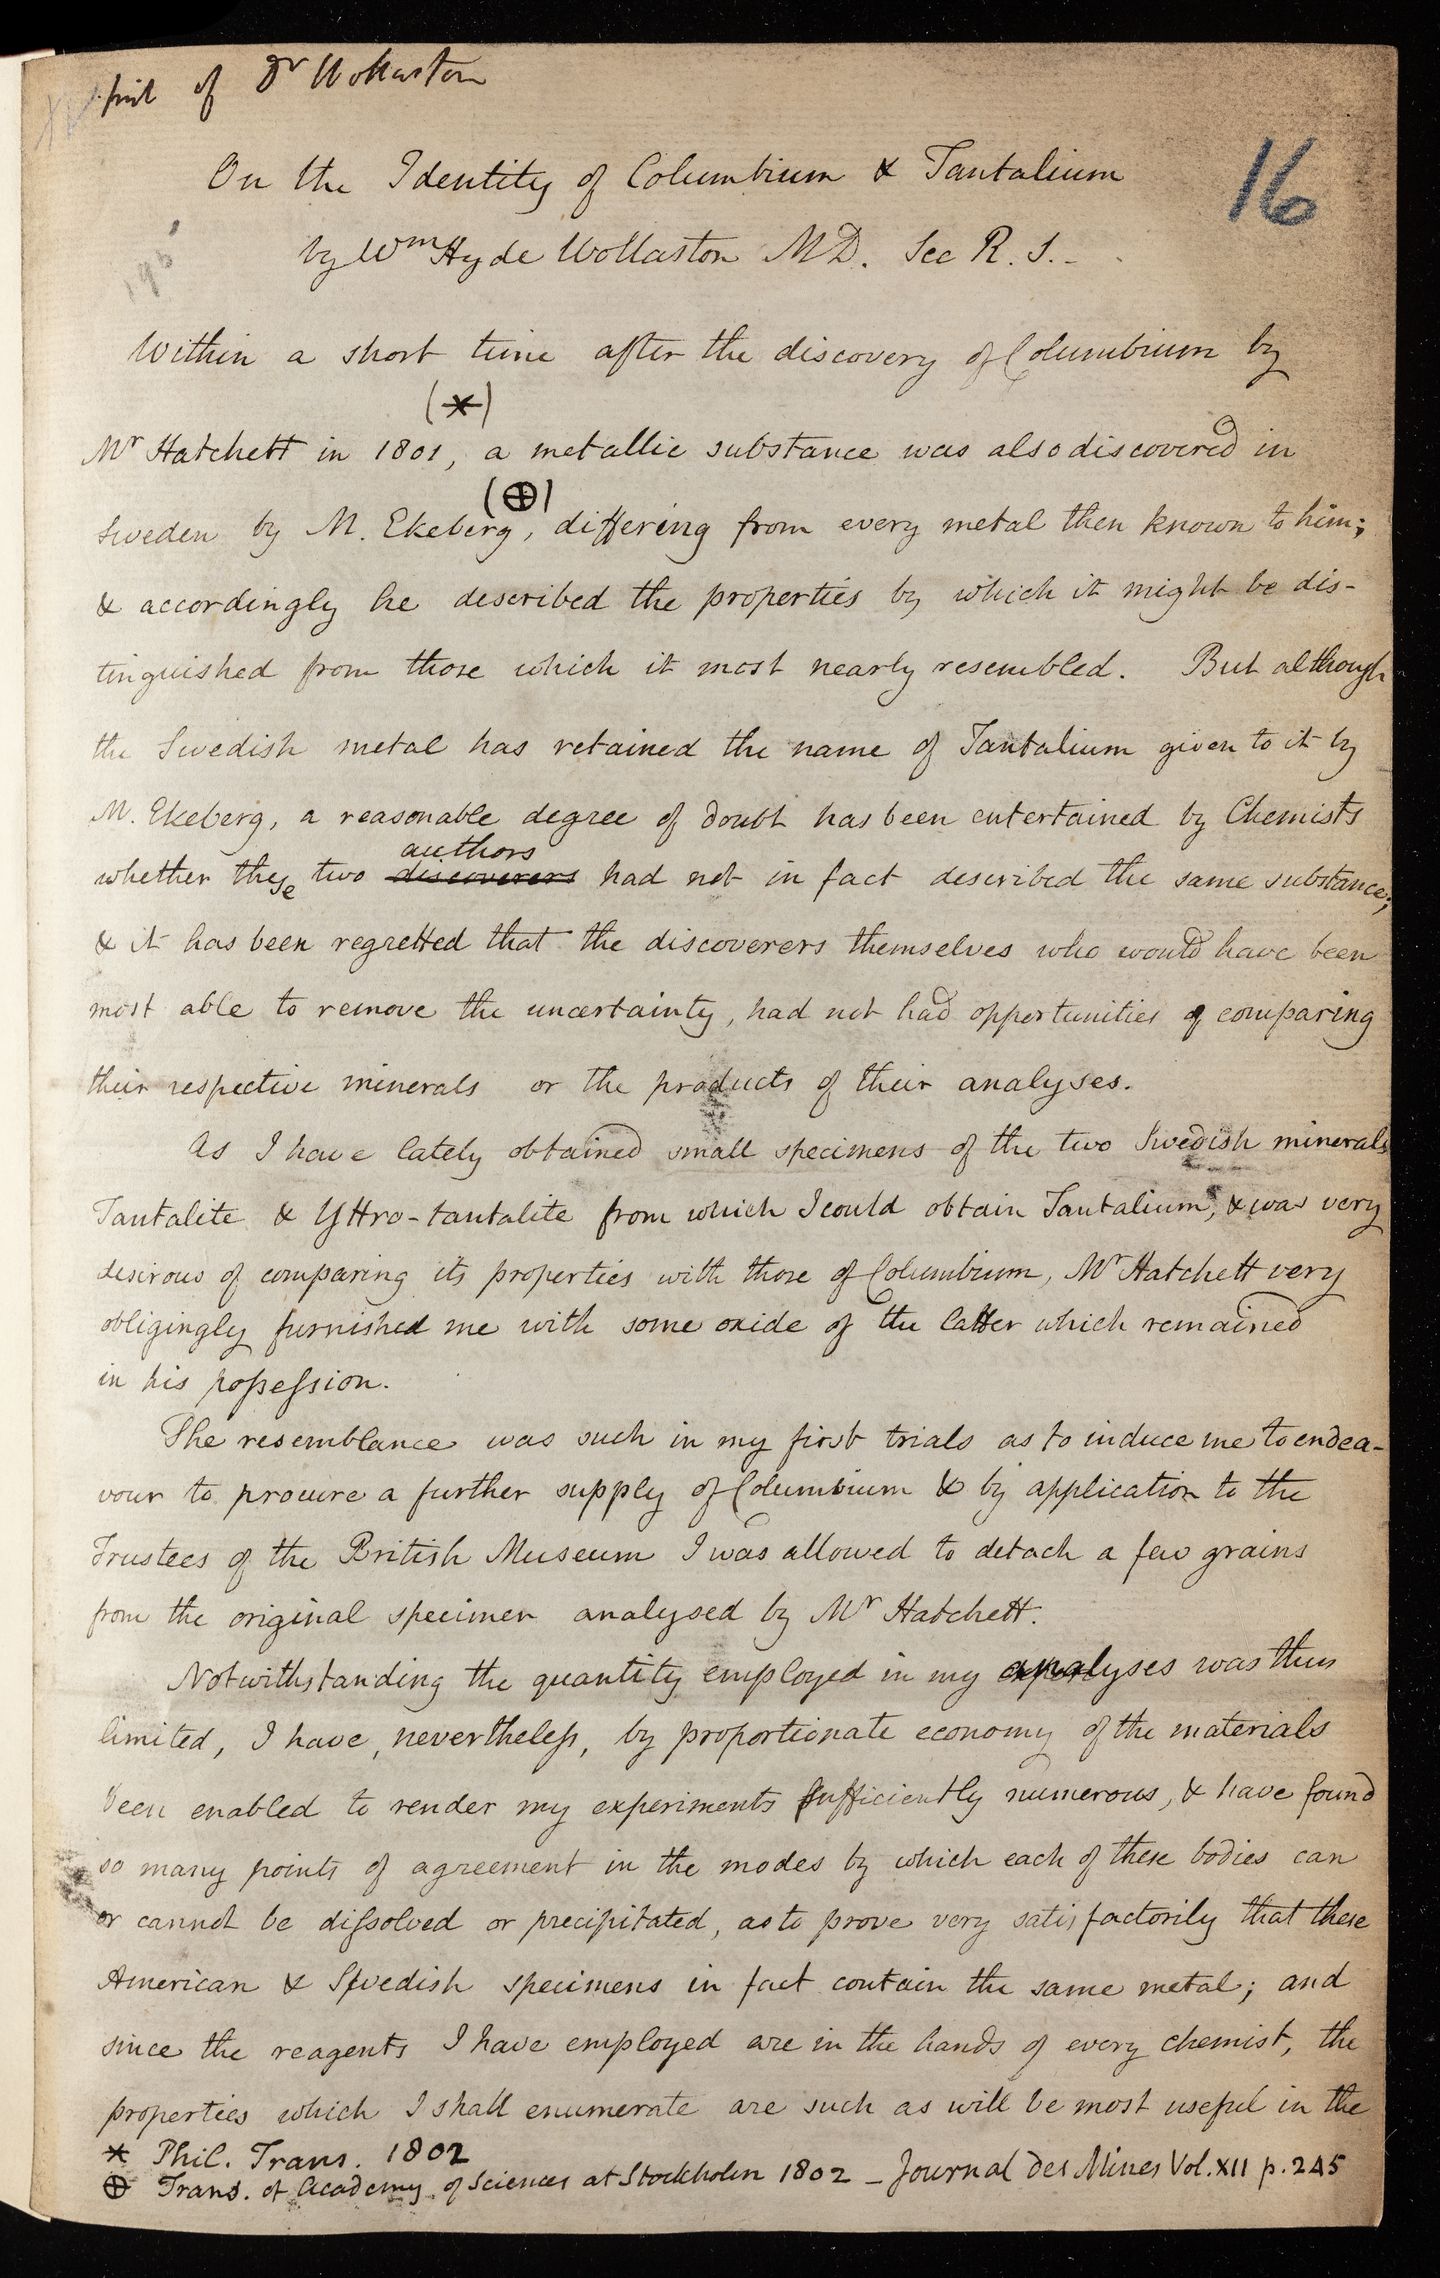 of Dr Wollaston
16
On the Identity of Columbium & Tantalium
by Wm Hyde Wollaston MD. Sec R. S.
Within a short time after the discovery of Columbium by
(*)
Mr Hatchett in 1801, a metallic substance was also discovered in
(⊕)
Sweden by M. Ekeberg, differing from every metal then known to him;
& accordingly he described the properties by which it might be dis-
tinguished from those which it most nearly resembled. But although
the Swedish metal has retained the name of Tantalium given to it by
M. Ekeberg, a reasonable degree of doubt has been entertained by Chemists
authors
whether these two discoverers had not in fact described the same substance;
& it has been regretted that the discoverers themselves who would have been
most able to remove the uncertainty, had not had opportunities of comparing
their respective minerals or the products of their analyses.
As I have lately obtained small specimens of the two Swedish minerals
Tantalite & Yttro-tantalite from which I could obtain Tantalium, & was very
desirous of comparing its properties with those of Columbium, Mr Hatchett very
obligingly furnished me with some oxide of the latter which remained
in his poſseſsion.
The resemblance was such in my first trials as to induce me to endea-
vour to procure a further supply of Columbium & by application to the
Trustees of the British Museum I was allowed to detach a few grains
from the original specimen analysed by Mr Hatchett.
Notwithstanding the quantity employed in my analyses was thus
limited, I have, nevertheleſs, by proportionate economy of the materials
been enabled to render my experiments sufficiently numerous, & have found
so many points of agreement in the modes by which each of these bodies can
or cannot be diſsolved or precipitated, as to prove very satisfactorily that these
American & Swedish specimens in fact contain the same metal; and
since the reagents I have employed are in the hands of every chemist, the
properties which I shall enumerate are such as will be most useful in the
* Phil. Trans. 1802
⊕ Trans. of Academy of Sciences at Stockholm 1802 – Journal des Mines Vol. XII p. 245